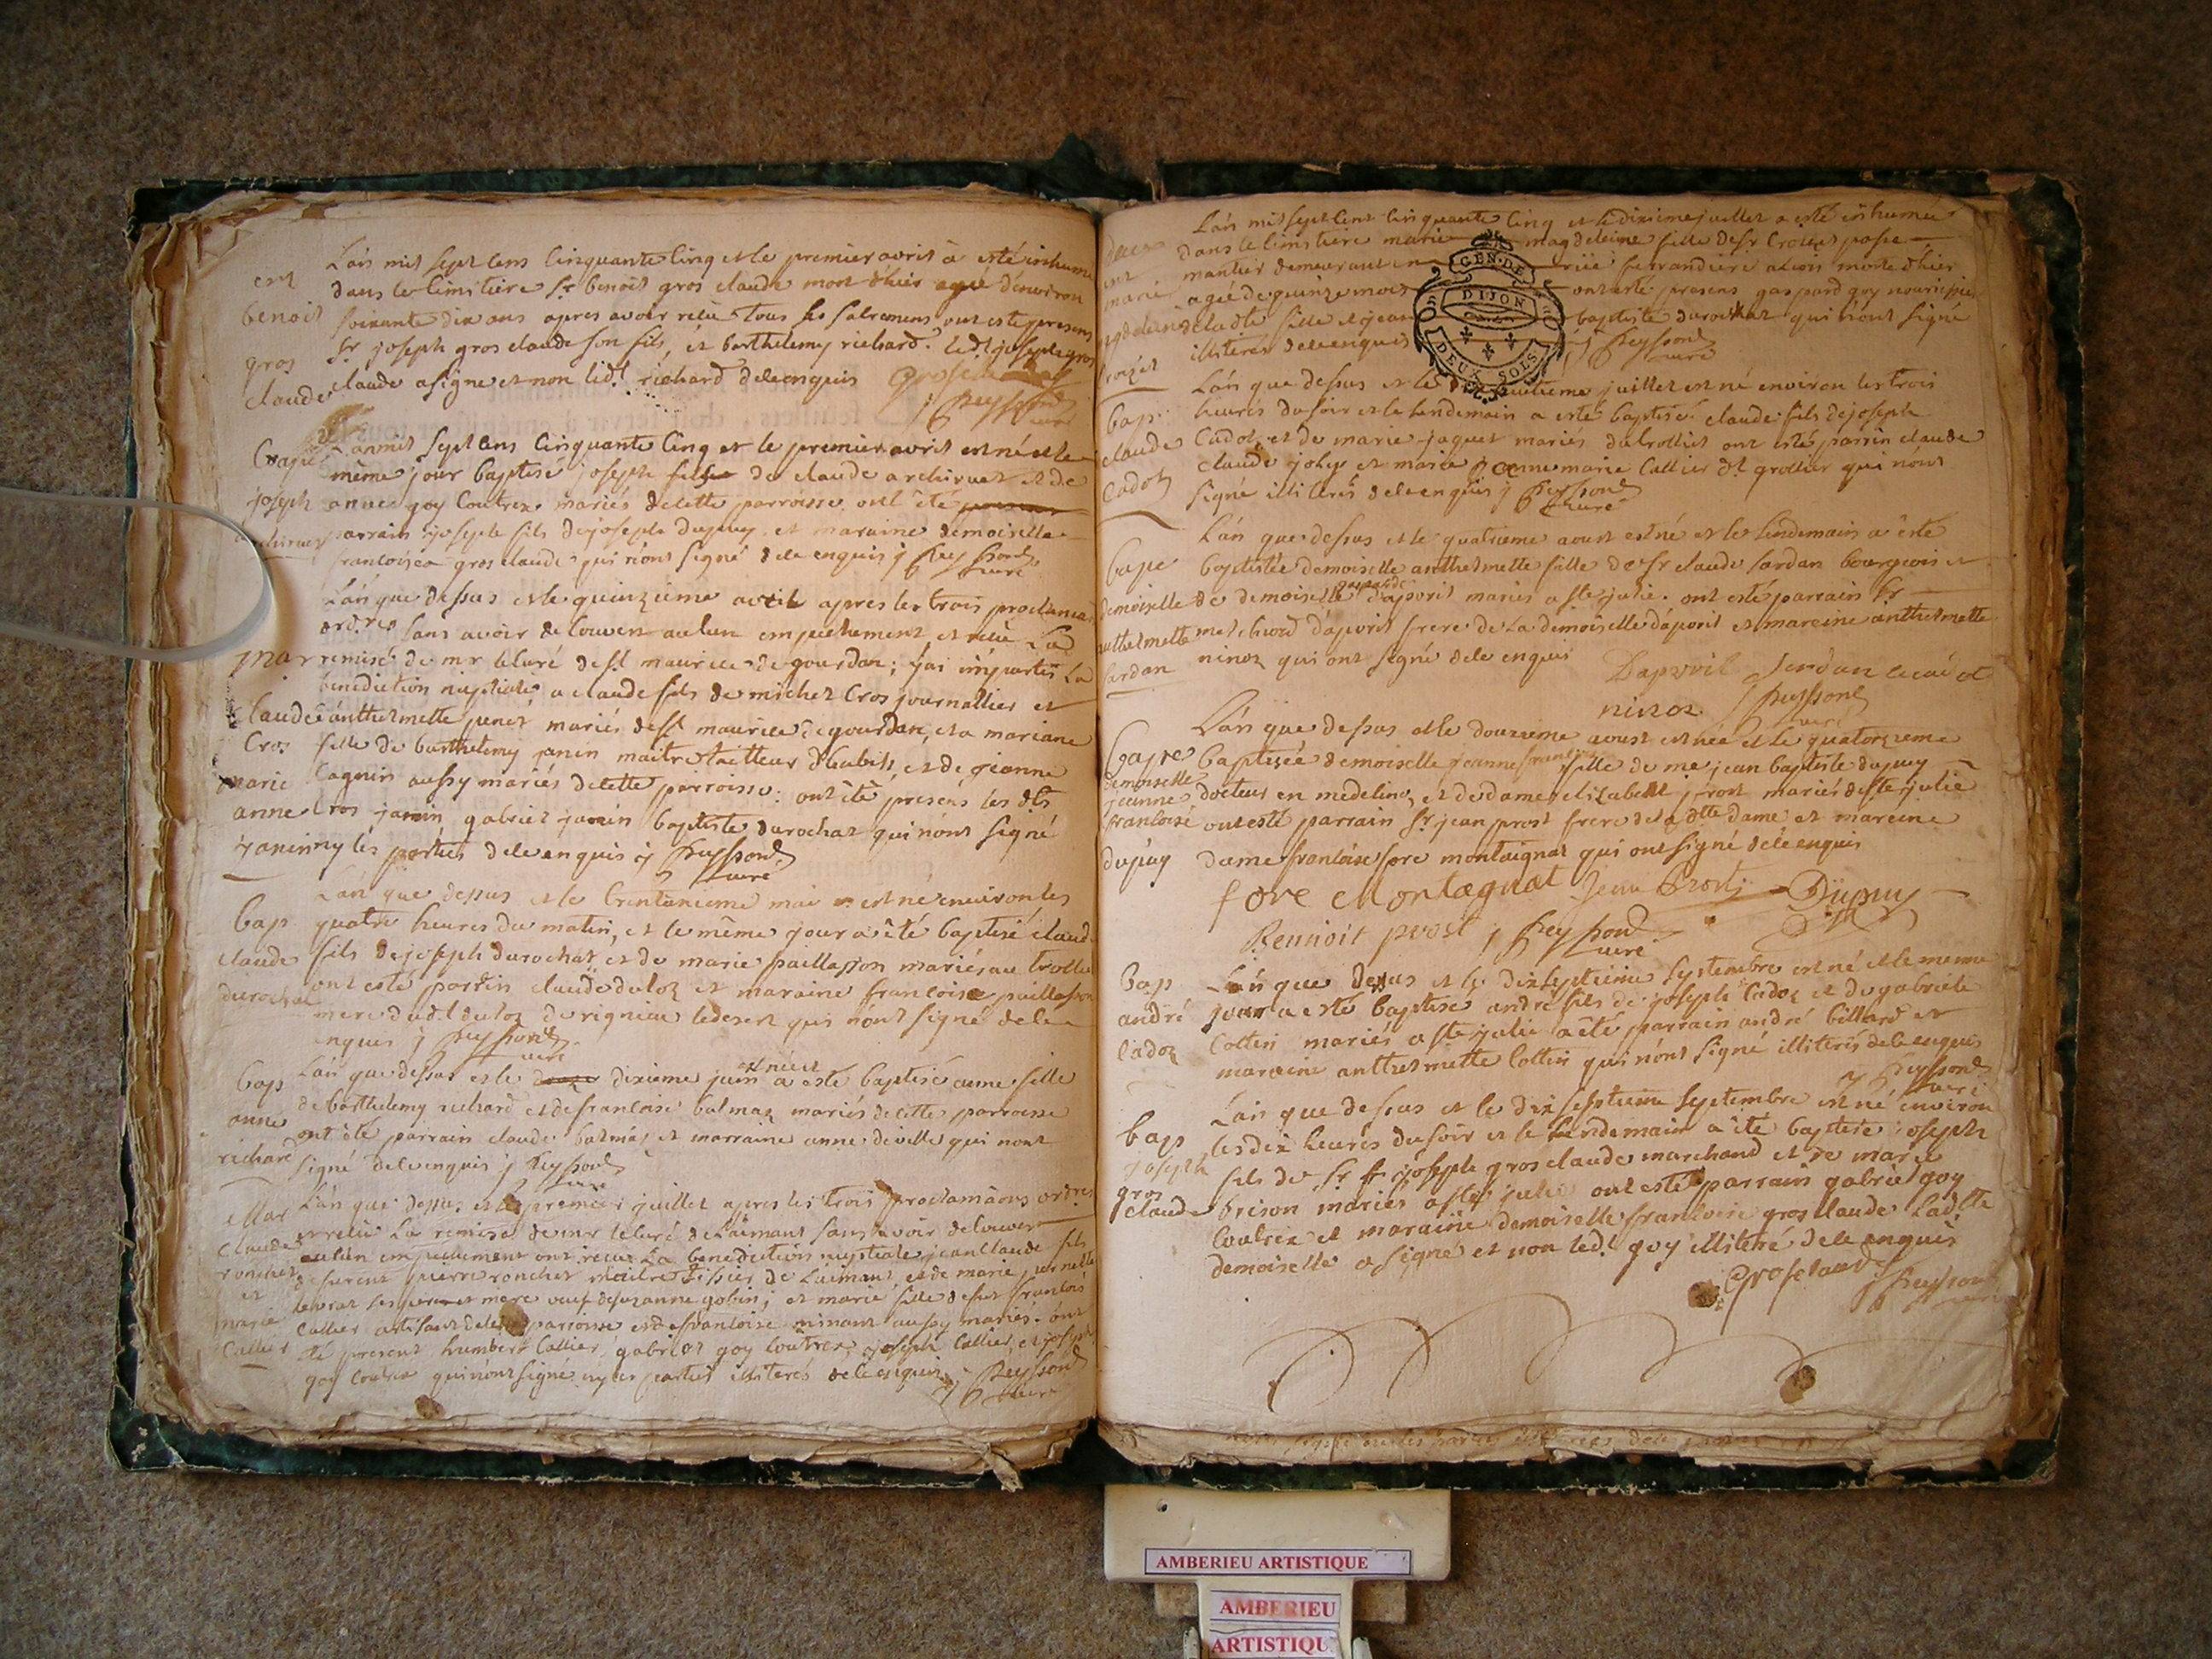 ent
benoit
gros
claude
L'an mil sept cens cinquante cinq et le premier avril à esté inhumé
dans le cimitiere Sr benoit gros claude mort d'hier agé d'environ
soixante dix ans apres avoir reçu tous les sacremens ont esté presens
Sr joseph gros claude son fils, et barthelemy richard. led. joseph gros
claude a signé et non led.t richard de ce enquis Grosclaude
j Reyssond
curé
Bapt
joseph
L'an mil sept cens cinquante cinq et le premier avril est né et le
même jour baptisé joseph fils de claude archirnet et de
anne goy coutrex mariés de cette parroisse ont été
parrain joseph fils de joseph dupuy et maraine demoiselle
francoise gros claude qui n'ont signé de ce enquis j Reyssond
curé
mar
claude
Cros
marie
anne
janin
L'an que dessus et le quinzieme avril apres les trois proclama
ord.res sans avoir decouvert aucun empechement et reçu la
remise de mr le curé de st maurice de gourdan; j'ai imparti la
benediction nuptiale a claude fils de michel Cros journallier et
d'anthelmette junet mariés de st maurice de gourdan, et a mariane
fille de barthelemy janin maitre tailleur d'habits, et de jeanne
cagnin aussy mariés de cette parroisse: ont été presens les dts
Cros janin gabriel janin baptiste durochat qui n'ont signé
ny les parties de ce enquis j Reyssond
curé
bap
claude
durochat
L'an que dessus et le trentunieme mai est né environ les
quatre heures du matin, et le même jour a été baptisé claude
fils de joseph durochat et de marie paillasson mariés au trollie
ont esté parrain claude duloz et maraine francoise paillasson
mere dud.t duloz de rignieu le desert qui n'ont signé de ce
enquis j Reyssond
curé
bap
anne
richard
L'an que dessus et le dixieme juin est née et a esté baptisé anne fille
de barthelemy richard et de francoise balmaz mariés de cette parroisse
ont été parrain claude balmaz et marraine anne deville qui n'ont
signé de ce enquis j Reyssond
curé
Mar
claude
ronchet
et
marie
Callier
L'an que dessus et le premier juillet apres les trois proclamaons ordres
et reçu la remise de mr le curé de Laimant sans avoir decouvert
aucun empechement ont reçu la benediction nuptiale jean claude fils
de furent pierre ronchet maitre tissier de Laimant et de marie pernette
levrat ses pere et mere veuf de suzanne gobin; et marie fille de fut francois
Callier artisant de cette parroisse et de francoise ninant aussy mariés. ont
été present humbert Callier, gabriel goy coutrex, joseph Callier, et joseph
goy coutrex qui n'ont signé ny les parties illiterés de ce enquis j Reyssond
curé
ent
marie
magdeleine
croizet
L'an mil sept cent cinquante cinq et le dixieme juillet a esté inhumée
dans le cimitiere marie magdeleine fille de Sr Croizet passe
mantier demeurant en rüe ferrandiere a Lion morte d'hier
agée de quinze mois ont esté presens gaspard goy nourissier
de la dte fille et jean baptiste durochat qui n'ont signé
illiterés de ce enquis j Reyssond
curé
Bap
claude
Cadoz
L'an que dessus et le huitieme juillet est né environ les trois
heures du soir et le lendemain a esté baptisé claude fils de joseph
Cadoz et de marie jaquet mariés du trolliet ont esté parrin claude
claude joly et marie jeanne marie Callier dt grollier qui n'ont
signé illiterés de ce enquis j Reyssond
curé
bape
demoiselle
anthelmette
Sardan
L'an que dessus et le quatrieme aoust est né et le lendemain a été
baptisée demoiselle anthelmette fille de Sr claude sardan bourgeois et
de demoiselle gasparde d'aporit mariés a ste julie. ont esté parrain Sr
melchiord d'aporit frere de la demoiselle d'aporit et maraine anthelmette
ninoz qui ont signé de ce enquis
ninoz j Reyssond
curé
bape
demoiselle
jeanne
francoise
dupuy
L'an que dessus et le douzieme aoust est née et le quatorzieme
baptisée demoiselle jeanne francoise fille de me jean baptiste dupuy
docteur en medecine, et de dame elizabeth prost mariés de ste julie
ont esté parrain Sr jean prost frere de la dtte dame et maraine
dame francoise fore montaignat qui ont signé de ce enquis
fore Montagnat Jean Prost Dupuy
Bennoit prost j Reyssond
curé
Bap
andré
Cadoz
L'an que dessus et le dix septieme septembre est né et le meme
jour a esté baptisé andré fils de joseph Cadoz et de gabriele
Cottin mariés a ste julie a été parrain andré billard et
maraine anthelmette Cottin qui n'ont signé illiterés de ce enquis
j Reyssond
curé
bap
joseph
gros
claude
L'an que dessus et le dix septieme septembre est né environ
les dix heures du soir et le lendemain a été baptisé joseph
fils de Sr joseph gros claude marchand et de marie
brison mariés a ste julie ont esté parrain gabriel goy
coutrex et maraine demoiselle francoise gros claude. Ladtte
demoiselle a signé et non led. goy illiteré de ce enquis
Grosclaude
j Reyssond
GEN. DE
DIJON
DEUX SOLS
AMBERIEU ARTISTIQUE
AMBERIEU
ARTISTIQU